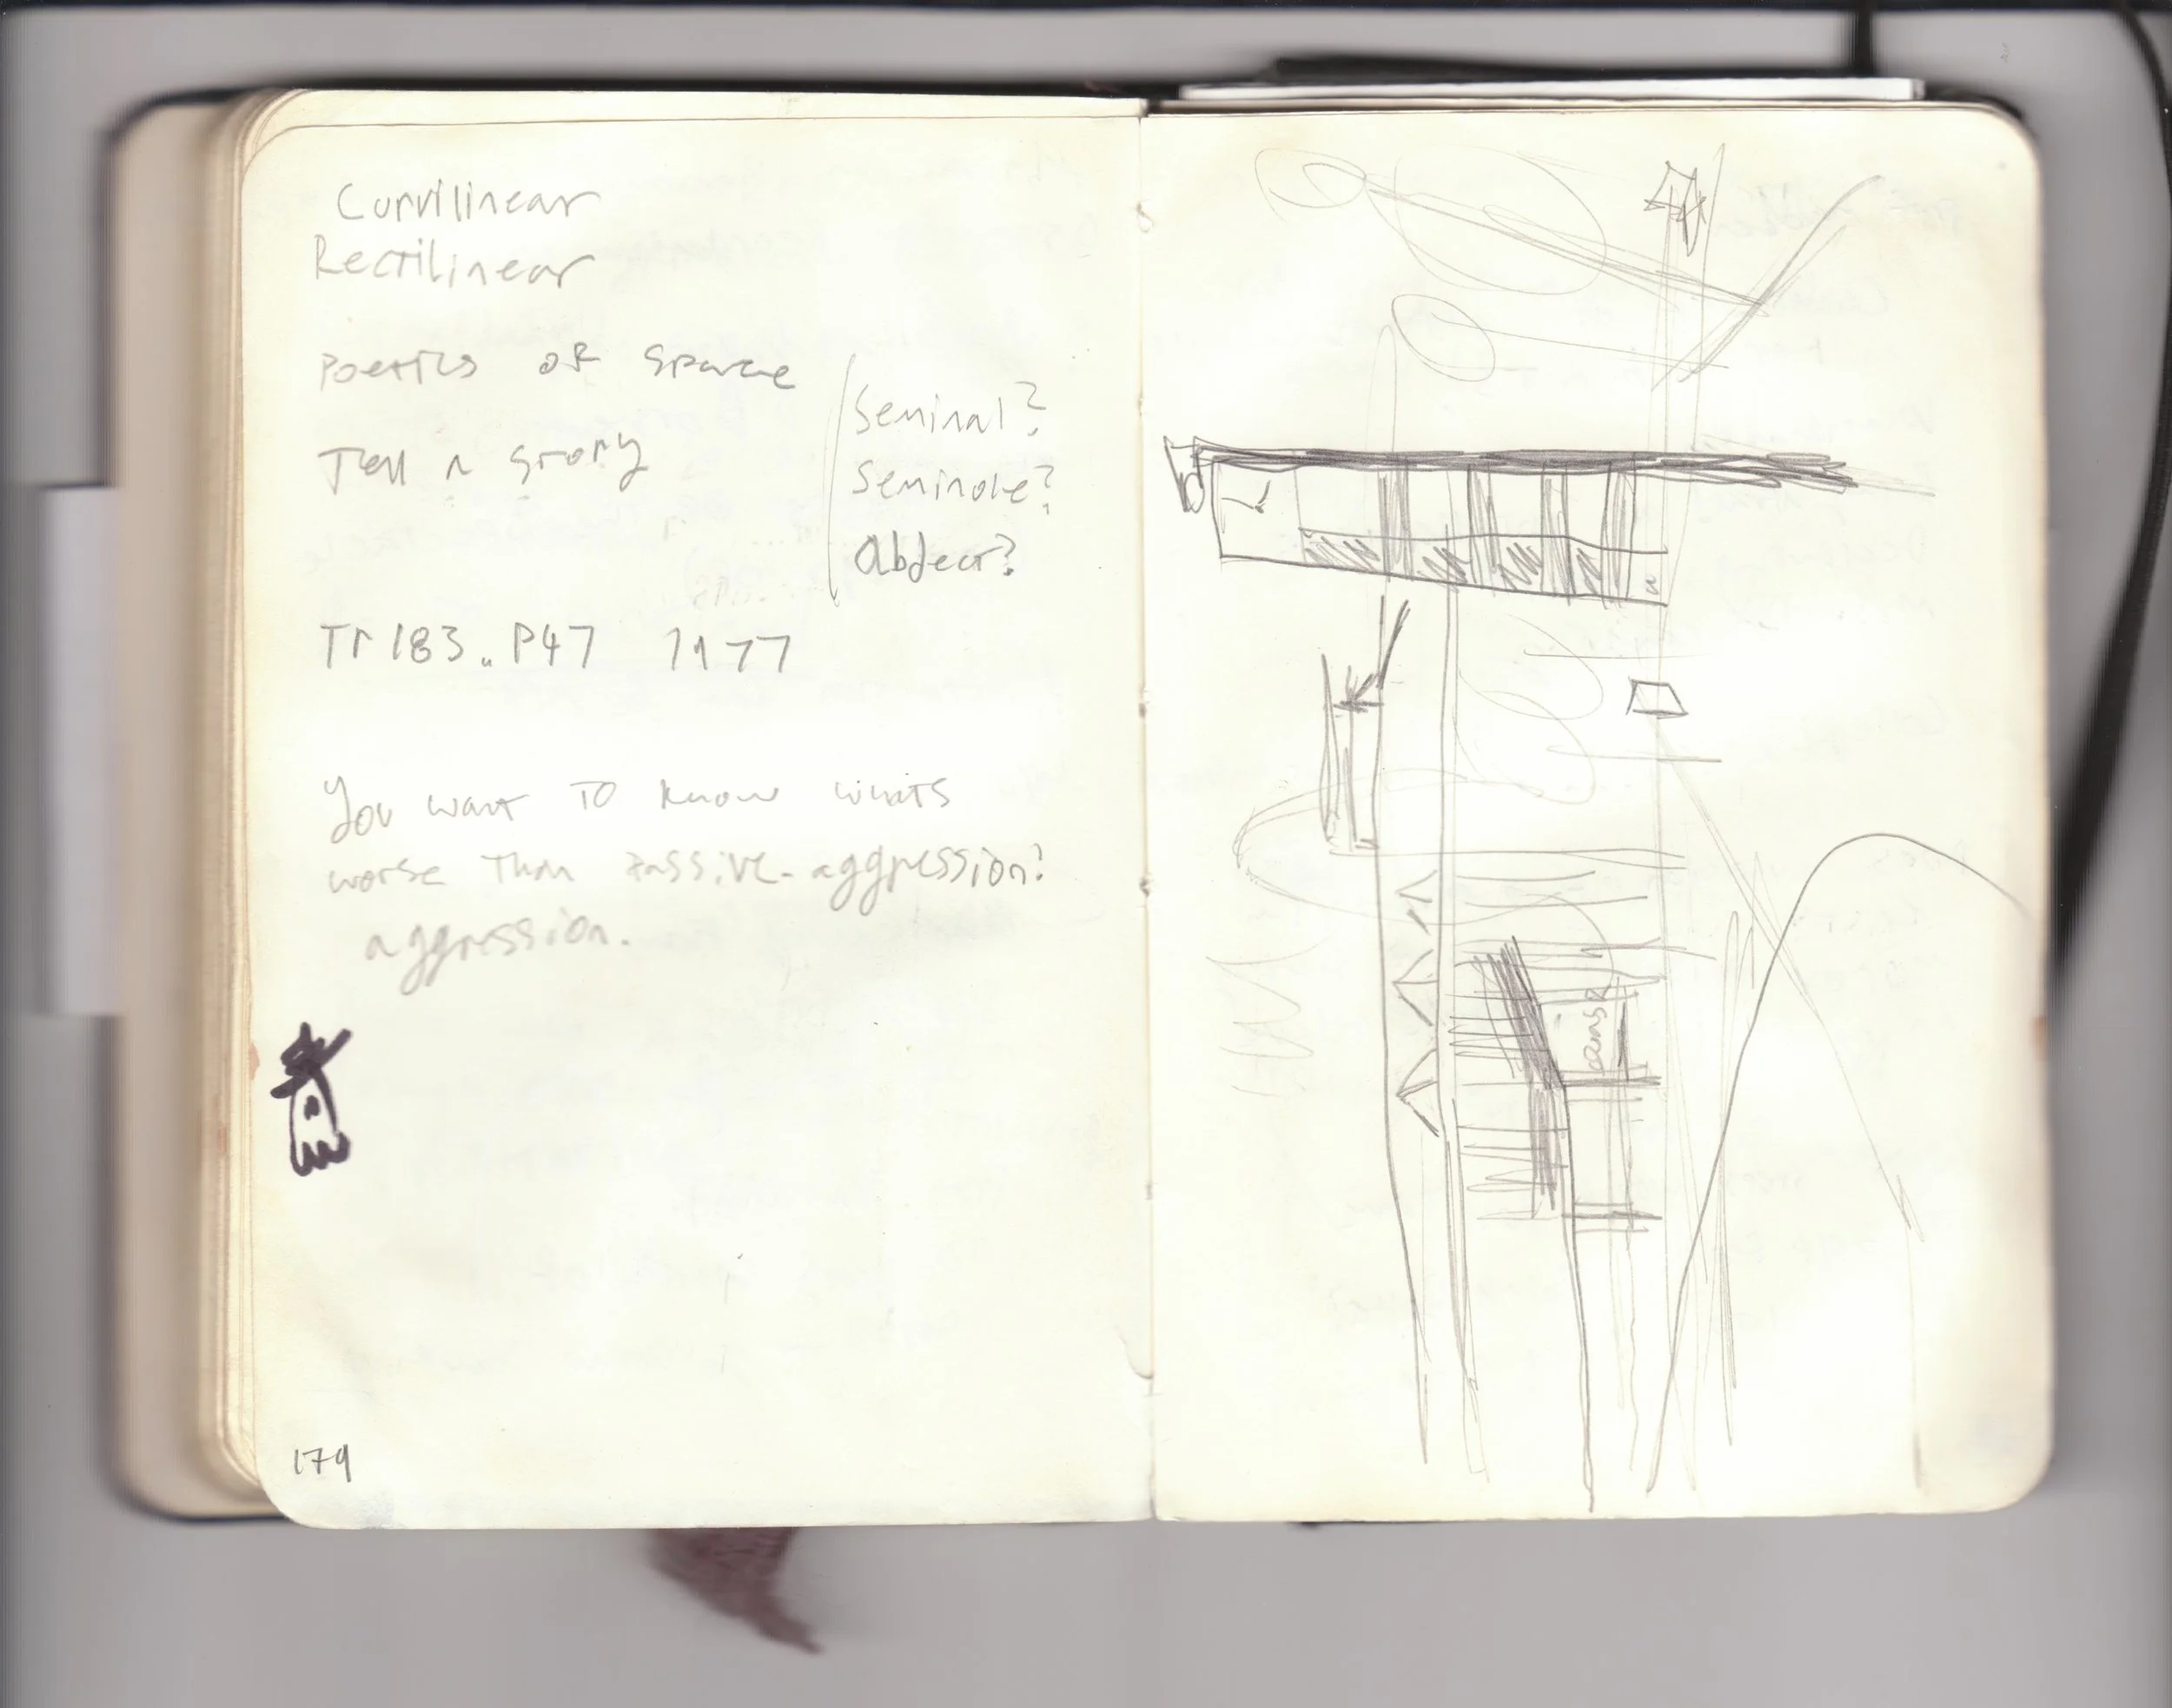 Curvilinear
Rectilinear
Poetics of space
Tell a story
Seminal?
Seminole?
Abject?
Tr 183. P47 1977
You want to know whats
worse than passive-aggression?
aggression.
179